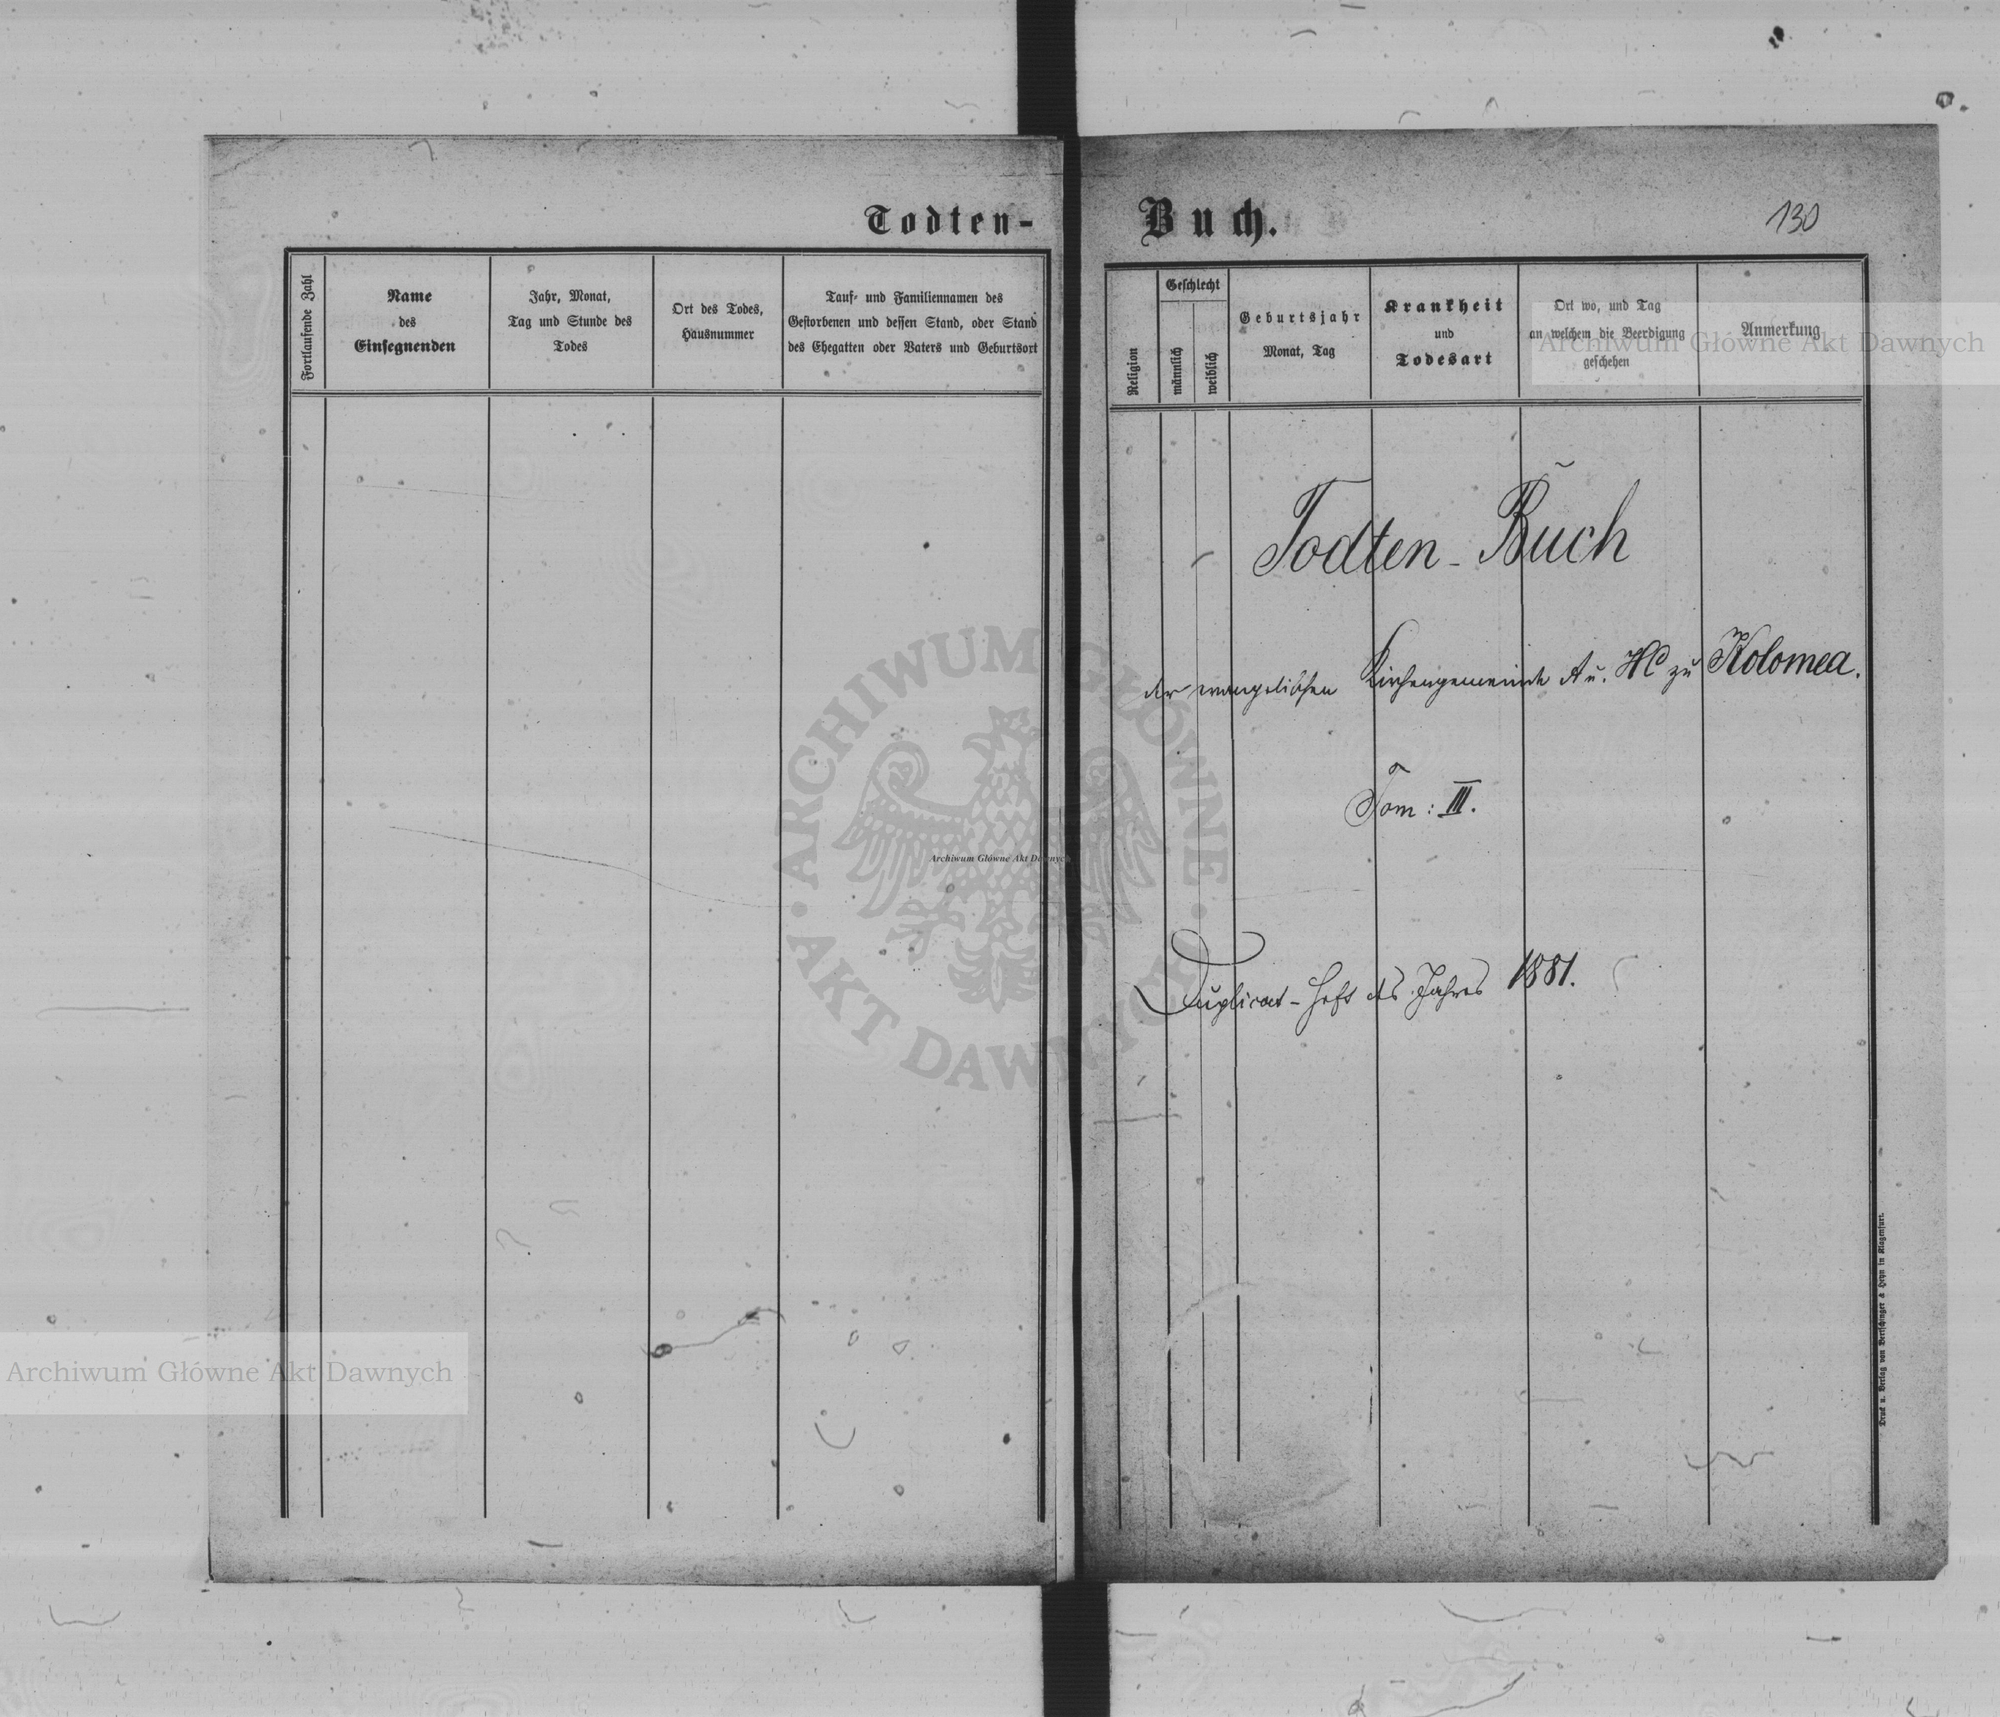 Todten-
Buch.
130
Fortlaufende Zahl
Name
des
Einsegnenden
Jahr, Monat,
Tag und Stunde des
Todes
Ort des Todes,
Hausnummer
Tauf- und Familiennamen des
Gestorbenen und dessen Stand, oder Stand
des Ehegatten oder Vaters und Geburtsort
Religion
Geschlecht
männlich
weiblich
Geburtsjahr
Monat, Tag
Krankheit
und
Todesart
Ort wo, und Tag
an welchem die Beerdigung
geschehen
Anmerkung
Archiwum Główne Akt Dawnych
Todten-Buch
der evangelischen Kirchengemeinde A u. HC zu Kolomea.
Tom: III.
Duplicat-Heft des Jahres 1881.
ARCHIWUM GŁÓWNE
AKT DAWNYCH
Archiwum Główne Akt Dawnych
Archiwum Główne Akt Dawnych
Druck u. Verlag von Bertschinger & Heyn in Klagenfurt.